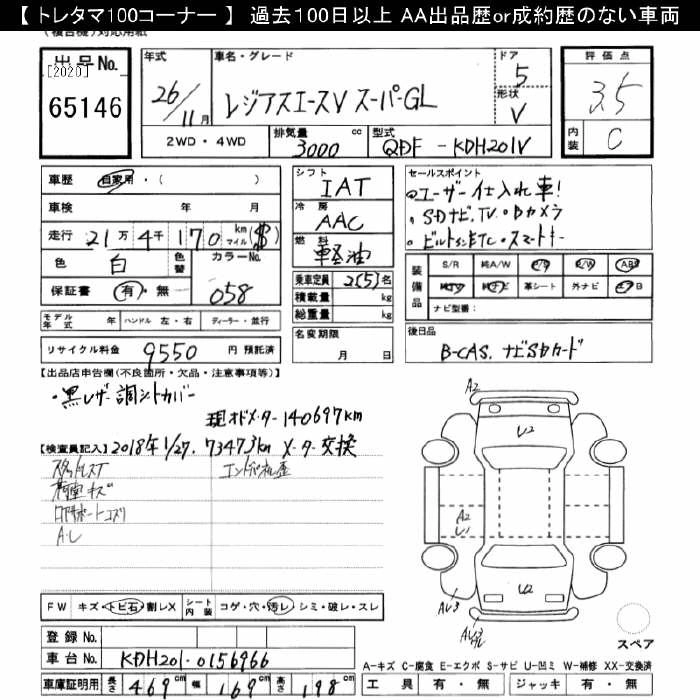 【 トレタマ100コーナー 】 過去100日以上 AA出品歴or成約歴のない車両
出品No.
[2020]
65146
年式
26/11月
車名・グレード
レジアスエースV スーパーGL
ドア
5
形状
V
評価点
3.5
内装
C
2WD・4WD
排気量
3000 cc
型式
QDF - KDH201V
車歴 自家用・( )
車検 年 月
走行 21万4千170 km マイル ($)
色 白 色替 カラーNo.
058
保証書 有・無
モデル年式 年 ハンドル 左・右 ディーラー・並行
リサイクル料金 9550 円 預託済
シフト
IAT
冷房
AAC
燃料
軽油
乗車定員 2(5)名
積載量 kg
総重量 kg
名変期限
月 日
セールスポイント
・ユーザー仕入れ車!
・SDナビ.TV.Bカメラ
・ビルトインETC・スマートキー
装備品
S/R 純A/W P/S P/W ABS
純TV 純ナビ 革シート 外ナビ エアB
ナビ型番:
後日品
B-CAS. ナビSDカード
【出品店申告欄(不良箇所・欠品・注意事項等)】
・黒レザー調シートカバー
現オドメーター140697km
【検査員記入】 2018年1/27. 73473km メーター交換
スタッドレスT
荷室キズ
ロアサポートコスリ
A・L
FW キズ・トビ石・割レX シート内装 コゲ・穴・汚レ・シミ・破レ・スレ
登録 No.
車台 No. KDH201-0156966
車庫証明用 長さ 469cm 幅 169cm 高さ 198cm
A2
U2
A2
U1
U2
AU3
スペア
A-キズ C-腐食 E-エクボ S-サビ U-凹ミ W-補修 XX-交換済
工具 有・無 ジャッキ 有・無